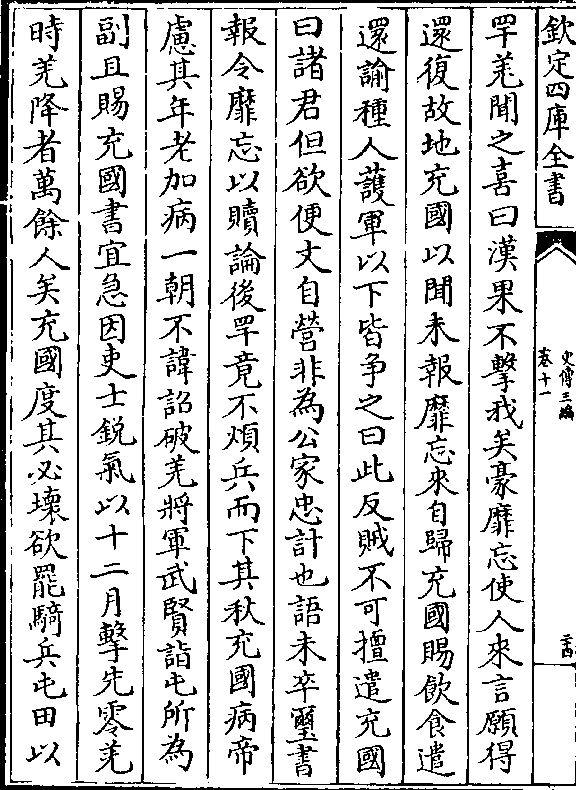 欽定四庫全書
史傳三編
卷十一
二十四
罕羌聞之喜曰漢果不擊我矣豪靡忘使人來言願得
還復故地充國以聞未報靡忘來自歸充國賜飲食遣
還諭種人護軍以下皆争之曰此反賊不可擅遣充國
曰諸君但欲便文自營非為公家忠計也語未卒璽書
報令靡忘以贖論後罕竟不煩兵而下其秋充國病帝
慮其年老加病一朝不諱詔破羌將軍武賢詣屯所為
副且賜充國書宜急因吏士銳氣以十二月擊先零羌
時羌降者萬餘人矣充國度其必壊欲罷騎兵屯田以